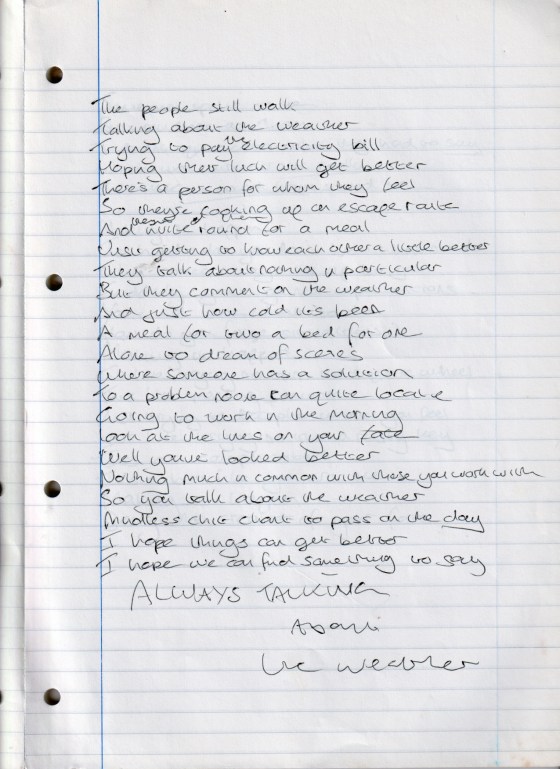 The people still walk
Talking about the weather
Trying to pay the electricity bill
Hoping their luck will get better
There's a person for whom they feel
So they're cooking up an escape route
And invite round for a meal
Just getting to know each other a little better
They talk about nothing in particular
But they comment on the weather
And just how cold its been
A meal for two a bed for one
Alone to dream of scenes
Where someone has a solution
To a problem noone can quite locate
Going to work in the morning
Look at the lines on your face
Well you've looked better
Nothing much in common with those you work with
So you talk about the weather
Mindless chit chat to pass on the day
I hope things can get better
I hope we can find something to say
ALWAYS TALKING
About
the weather